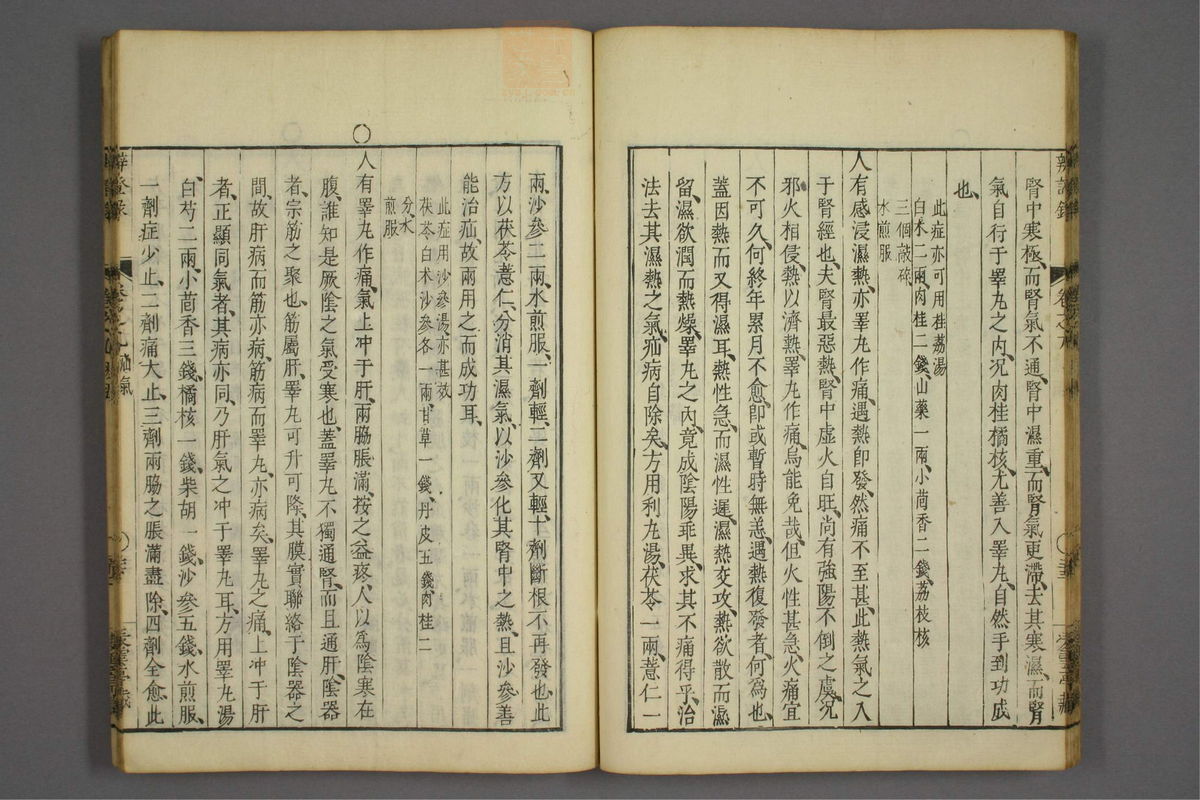 腎中寒極、而腎氣不通、腎中濕重、而腎氣更滯、去其寒濕、而腎
氣自行于睪丸之內、况肉桂橘核、尤善入睪丸、自然手到功成
也、
此症亦可用桂荔湯
白术二兩、肉桂二錢、山藥一兩、小茴香二錢、荔枝核
三個敲碎
水煎服
人有感浸濕熱、亦睪丸作痛、遇熱即發、然痛不至甚、此熱氣之入
于腎經也、夫腎最惡熱、腎中虛火自旺、尚有強陽不倒之虞、况
邪火相侵、熱以濟熱、睪丸作痛、烏能免哉、但火性甚急、火痛宜
不可久、何終年累月不愈、即或暫時無恙、遇熱復發者、何爲也、
蓋因熱而又得濕耳、熱性急、而濕性遲、濕熱交攻、熱欲散而濕
留、濕欲潤而熱燥、睪丸之內、竟成陰陽乖異、求其不痛得乎、治
法去其濕熱之氣、疝病自除矣、方用利丸湯、茯苓一兩、薏仁一
兩、沙參二兩、水煎服、一劑輕、二劑又輕、十劑斷根不再發也、此
方以茯苓薏仁、分消其濕氣、以沙參化其腎中之熱、且沙參善
能治疝、故兩用之而成功耳、
此症用沙參湯、亦甚效
茯苓白术沙參各一兩、甘草一錢、丹皮五錢、肉桂二
分、水
煎服
〇
人有睪丸作痛、氣上冲于肝、兩脇脹滿、按之益疼、人以爲陰寒在
腹、誰知是厥陰之氣受寒也、蓋睪丸不獨通腎、而且通肝、陰器
者、宗筋之聚也、筋屬肝、睪丸可升可降、其膜實聯絡于陰器之
間、故肝病而筋亦病、筋病而睪丸、亦病矣、睪丸之痛、上冲于肝
者、正顯同氣者、其病亦同、乃肝氣之冲于睪丸耳、方用睪丸湯
白芍二兩、小茴香三錢、橘核一錢、柴胡一錢、沙參五錢、水煎服、
一劑症少止、二劑痛大止、三劑兩脇之脹滿盡除、四劑全愈、此